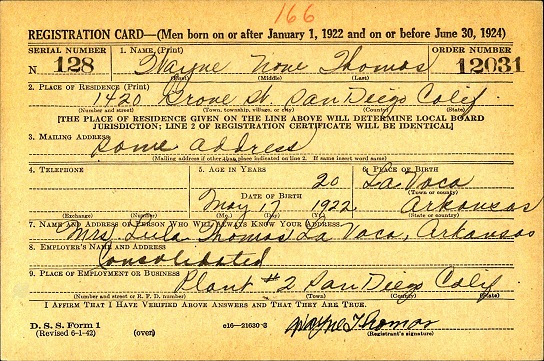 166
REGISTRATION CARD—(Men born on or after January 1, 1922 and on or before June 30, 1924)
SERIAL NUMBER 1. NAME (Print) ORDER NUMBER
N 128 Wayne None Thomas 12031
(First) (Middle) (Last)
2. PLACE OF RESIDENCE (Print)
1420 Grove St. San Diego Calif
(Number and street) (Town, township, village, or city) (County) (State)
[THE PLACE OF RESIDENCE GIVEN ON THE LINE ABOVE WILL DETERMINE LOCAL BOARD
JURISDICTION; LINE 2 OF REGISTRATION CERTIFICATE WILL BE IDENTICAL]
3. MAILING ADDRESS
Same address
(Mailing address if other than place indicated on line 2. If same insert word same)
4. TELEPHONE 5. AGE IN YEARS 6. PLACE OF BIRTH
20 La Vaca
DATE OF BIRTH (Town or county)
May 17 1922 Arkansas
(Exchange) (Number) (Mo.) (Day) (Yr.) (State or country)
7. NAME AND ADDRESS OF PERSON WHO WILL ALWAYS KNOW YOUR ADDRESS
Mrs. Lula Thomas La Vaca, Arkansas
8. EMPLOYER'S NAME AND ADDRESS
Consolidated
9. PLACE OF EMPLOYMENT OR BUSINESS
Plant #2 San Diego Calif
(Number and street or R. F. D. number) (Town) (County) (State)
I AFFIRM THAT I HAVE VERIFIED ABOVE ANSWERS AND THAT THEY ARE TRUE.
D. S. S. Form 1
(Revised 6-1-42) (over) c16—21630-2 Wayne Thomas
(Registrant's signature)